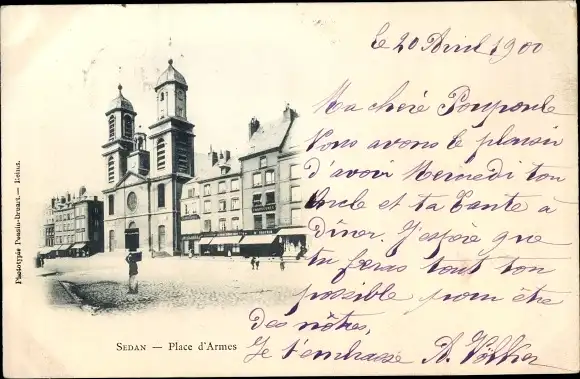 le 20 Avril 1900
Ma chère Poupoule
Nous avons le plaisir
d'avoir Mercredi ton
Oncle et ta tante à
dîner. J'espère que
tu feras tout ton
possible pour être
des nôtres,
Je t'embrasse A. Völker
SEDAN — Place d'Armes
Phototypie